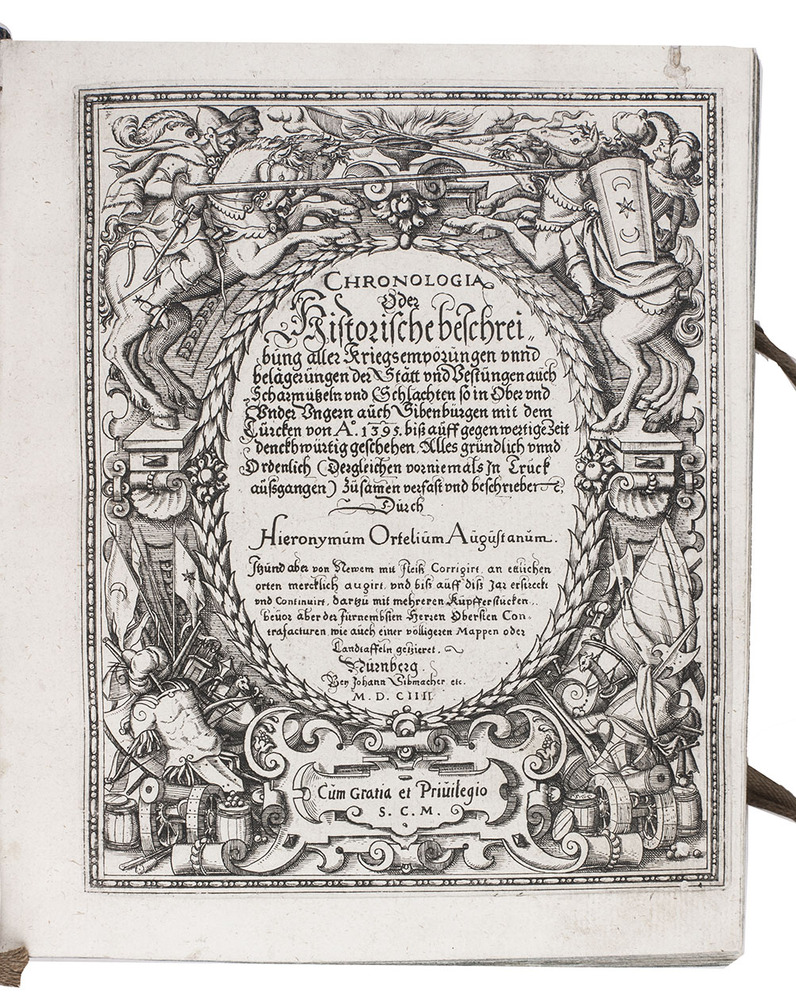 CHRONOLOGIA
Oder
Historische beschrei„
bung aller Kriegsempörungen vnnd
belägerungen der Stätt vnd Vestungen auch
Scharmützeln vnd Schlachten so in Ober vnd
Vnder Vngern auch Sibenbürgen mit dem
Türcken von A.º 1395. biß auff gegenwertige Zeit
denckhwürtig geschehen. Alles gründlich vnnd
Ordenlich (Dergleichen vorniemals Jn Truck
außgangen) Zusamen verfast vnd beschrieben ꝛc.
Durch
Hieronymüm Ortelium Augustanum.
Jtzund aber von Newem mit fleiß Corrigirt. an etlichen
orten mercklich augirt. vnd biß auff diß Jar erstreckt
vnd Continuirt. dartzu mit mehreren Küpfferstücken..
beuor aber der fürnembsten Herren Obersten Con„
trafacturen wie auch einer völligeren Mappen oder
Landtaffeln gezieret.
Nürnberg.
Bey Johann Sibmacher etc.
M. D. CIIII
Cŭm Gratia et Priŭilegio
S. C. M.